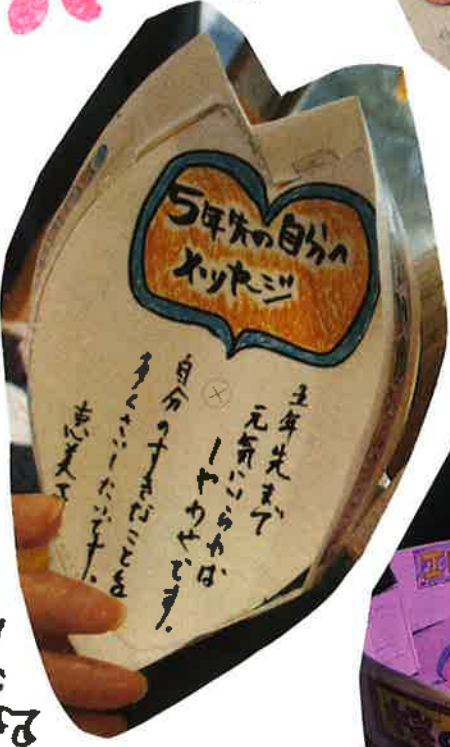 5年先の自分へ
メッセージ
五年先まで
元気にいられば
しやわせです。
自分のすきなことを
たくさんしたいです。
恵美子